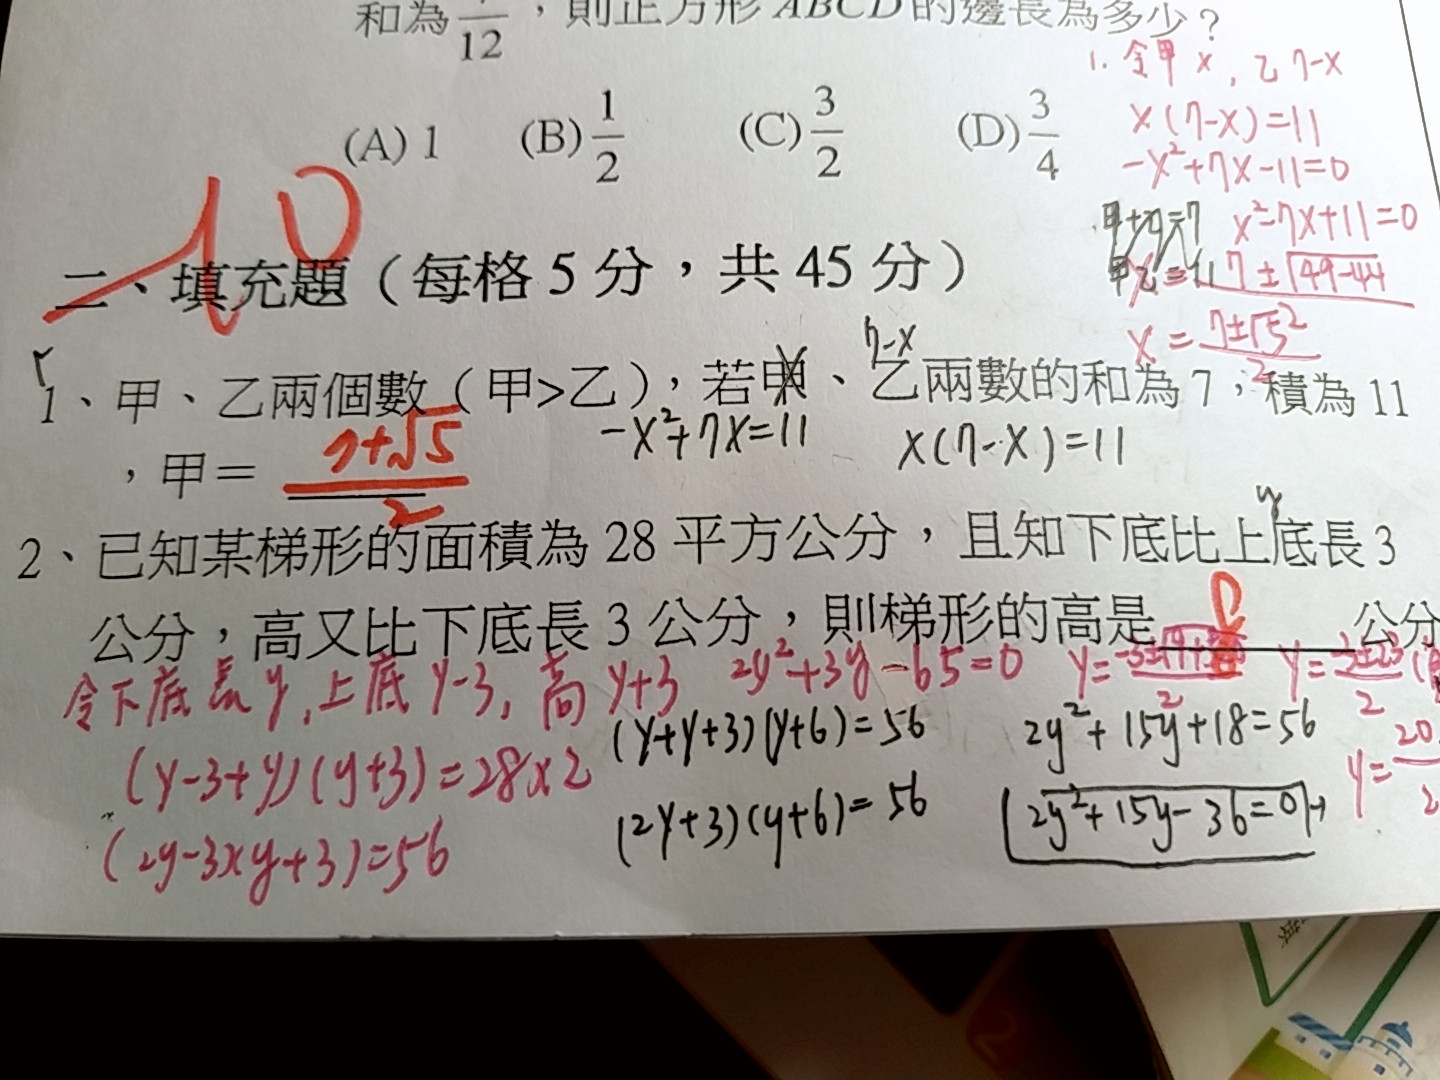 和為 7/12，則正方形ABCD的邊長為多少？
(A) 1 (B) 1/2 (C) 3/2 (D) 3/4
1. 令甲 x，乙 7-x
x(7-x)=11
-x²+7x-11=0
x²-7x+11=0
甲+乙=7
甲乙=11
x=7±√49-44
x=7±√5/2
10
二、填充題（每格 5 分，共 45 分）
7-x
1、甲、乙兩個數（甲>乙），若甲、乙兩數的和為 7，積為 11
，甲＝ 7+√5/2
-x²+7x=11
x(7-x)=11
y
2、已知某梯形的面積為 28 平方公分，且知下底比上底長 3
公分，高又比下底長 3 公分，則梯形的高是 8 公分
令下底長 y，上底 y-3，高 y+3
(y-3+y)(y+3)=28x2
(2y-3)(y+3)=56
2y²+3y-65=0
(y+y+3)(y+6)=56
(2y+3)(y+6)=56
2y²+15y+18=56
2y²+15y-36=0